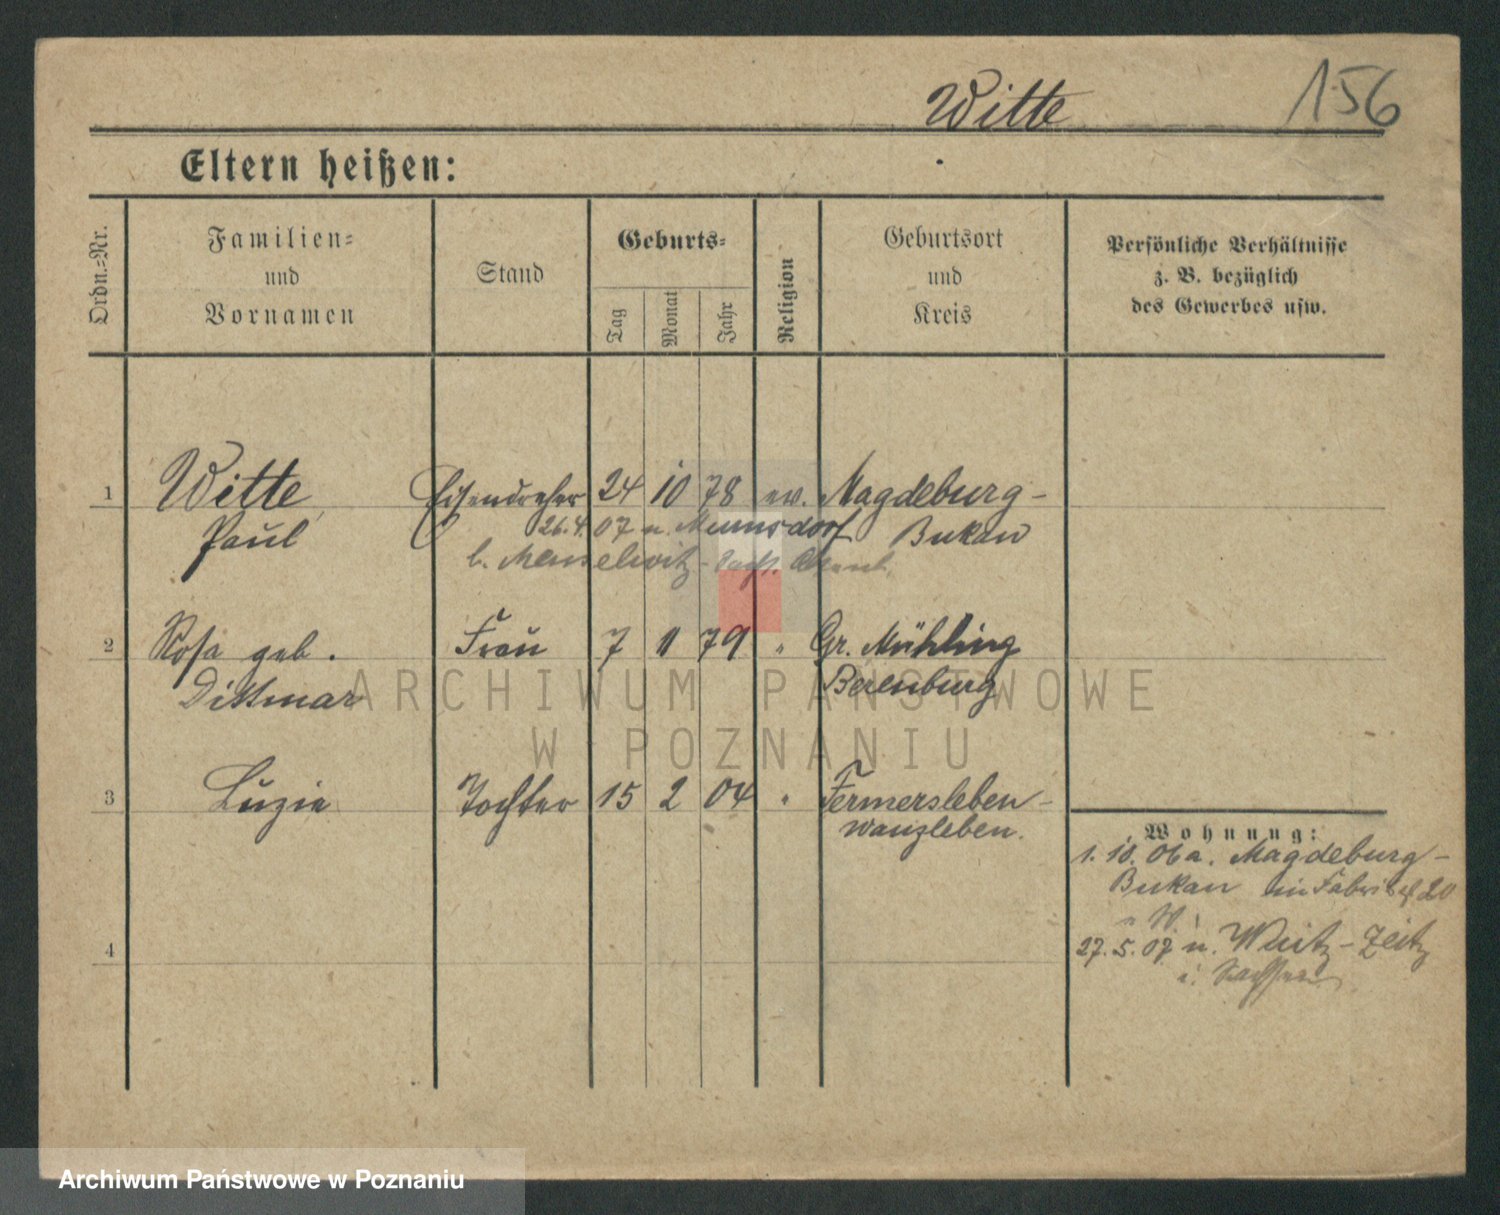 Witte 156
Eltern heißen:
Ordn.-Nr.
Familien-
und
Vornamen
Stand
Geburts-
Tag
Monat
Jahr
Religion
Geburtsort
und
Kreis
Persönliche Verhältnisse
z. B. bezüglich
des Gewerbes usw.
1 Witte, Eisendreher 24 10 78 ev. Magdeburg-
Paul 26.4.07 n. Mumsdorf Bukau
b. Meuselwitz
2 Rosa geb. Frau 7 11 79 " Gr. Mühling
Dittmar Berenburg
3 Luzie Tochter 15 2 04 " Fermersleben-
Wanzleben.
Wohnung:
1. 10. 06 a. Magdeburg-
Bukau 20
27. 5. 07 n. Zeitz
i. Sachsen
4
ARCHIWUM PAŃSTWOWE
W POZNANIU
Archiwum Państwowe w Poznaniu